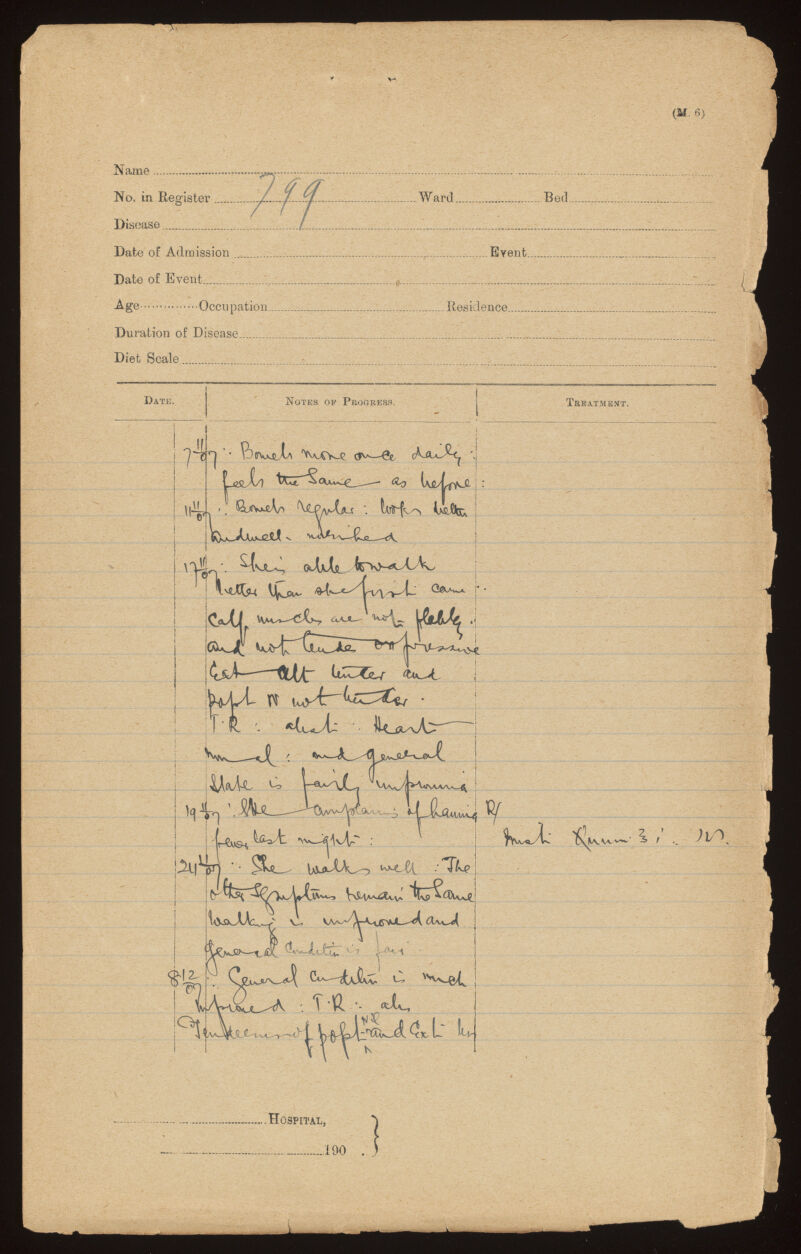 (M. 6)
Name
No. in Register 799 Ward Bed
Disease
Date of Admission Event
Date of Event
Age Occupation Residence
Duration of Disease
Diet Scale
DATE. NOTES OF PROGRESS. TREATMENT.
7 11/07 : Bowels move once daily :
feels the Same as before :
11 11/07 : Bowels regular : looks better
and well-nourished
17 11/07 : She is able to walk
better than she first came :
Calf muscles are not flabby.
and not tender on pressure
Ext tender and
popt not tender.
T.R : absti Heart
normal : and general
State is fairly improving
19 11/07 : She complains of having R/
fever last night :
24 11/07 : She walks well : The
other Symptoms remain the Same
Walking is improved and
general Condition is fair
8 12/07 : General Condition is much
Improved : T.R : abs
Tenderness of popt and Ext
HOSPITAL,
190 .